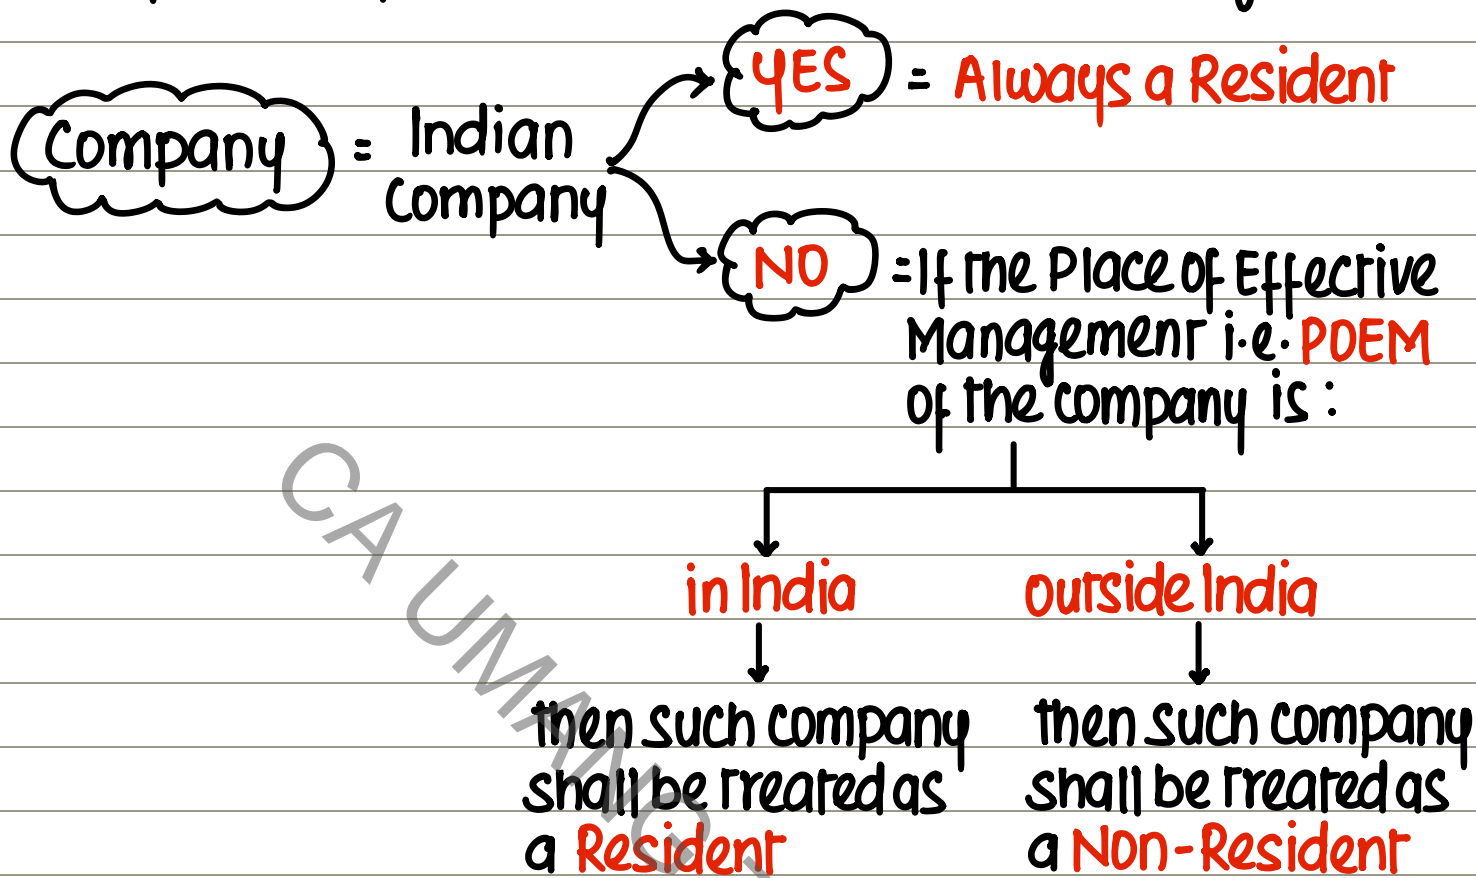 YES = Always a Resident
Company = Indian
Company
NO = If the Place of Effective
Management i.e. POEM
of the company is :
in India
outside India
then such company
shall be treated as
a Resident
then such company
shall be treated as
a Non-Resident
CA UMANG